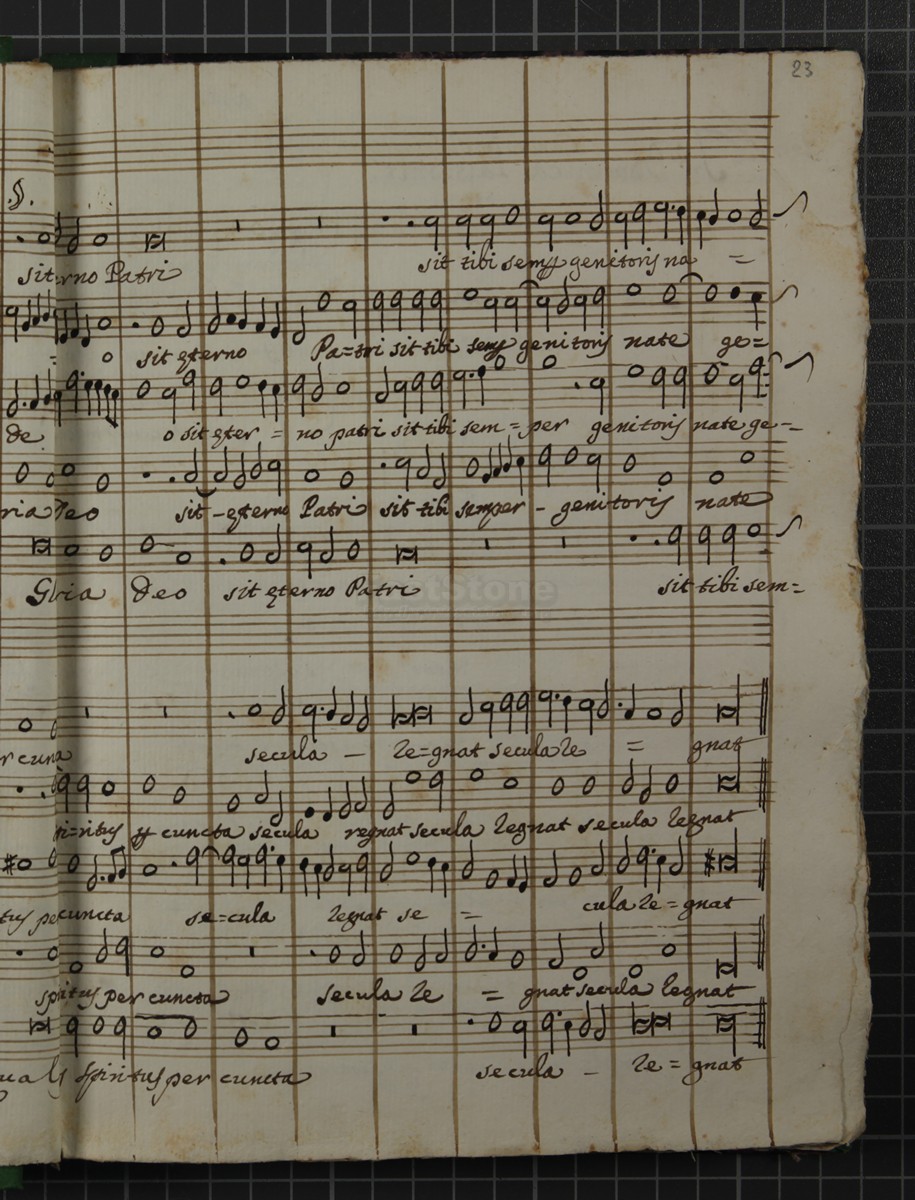 23
§.
sit erno Patri sit tibi semp genitoris na =
= o sit ęterno Pa=tri sit tibi semp genitoris nate ge=
de o sit ęter = no patri sit tibi sem = per genitoris nate ge=
ria Deo sit - ęterno Patri sit tibi semper - genitoris nate
Gloria Deo sit ęterno Patri sit tibi sem=
r cunc secula - re=gnat secula re = gnat
ri=ritus p cuncta secula regnat secula regnat secula regnat
tus per cuncta se=cula regnat se = cula re=gnat
spiritus per cuncta secula re = gnat secula regnat
spiritus per cuncta secula - re = gnat